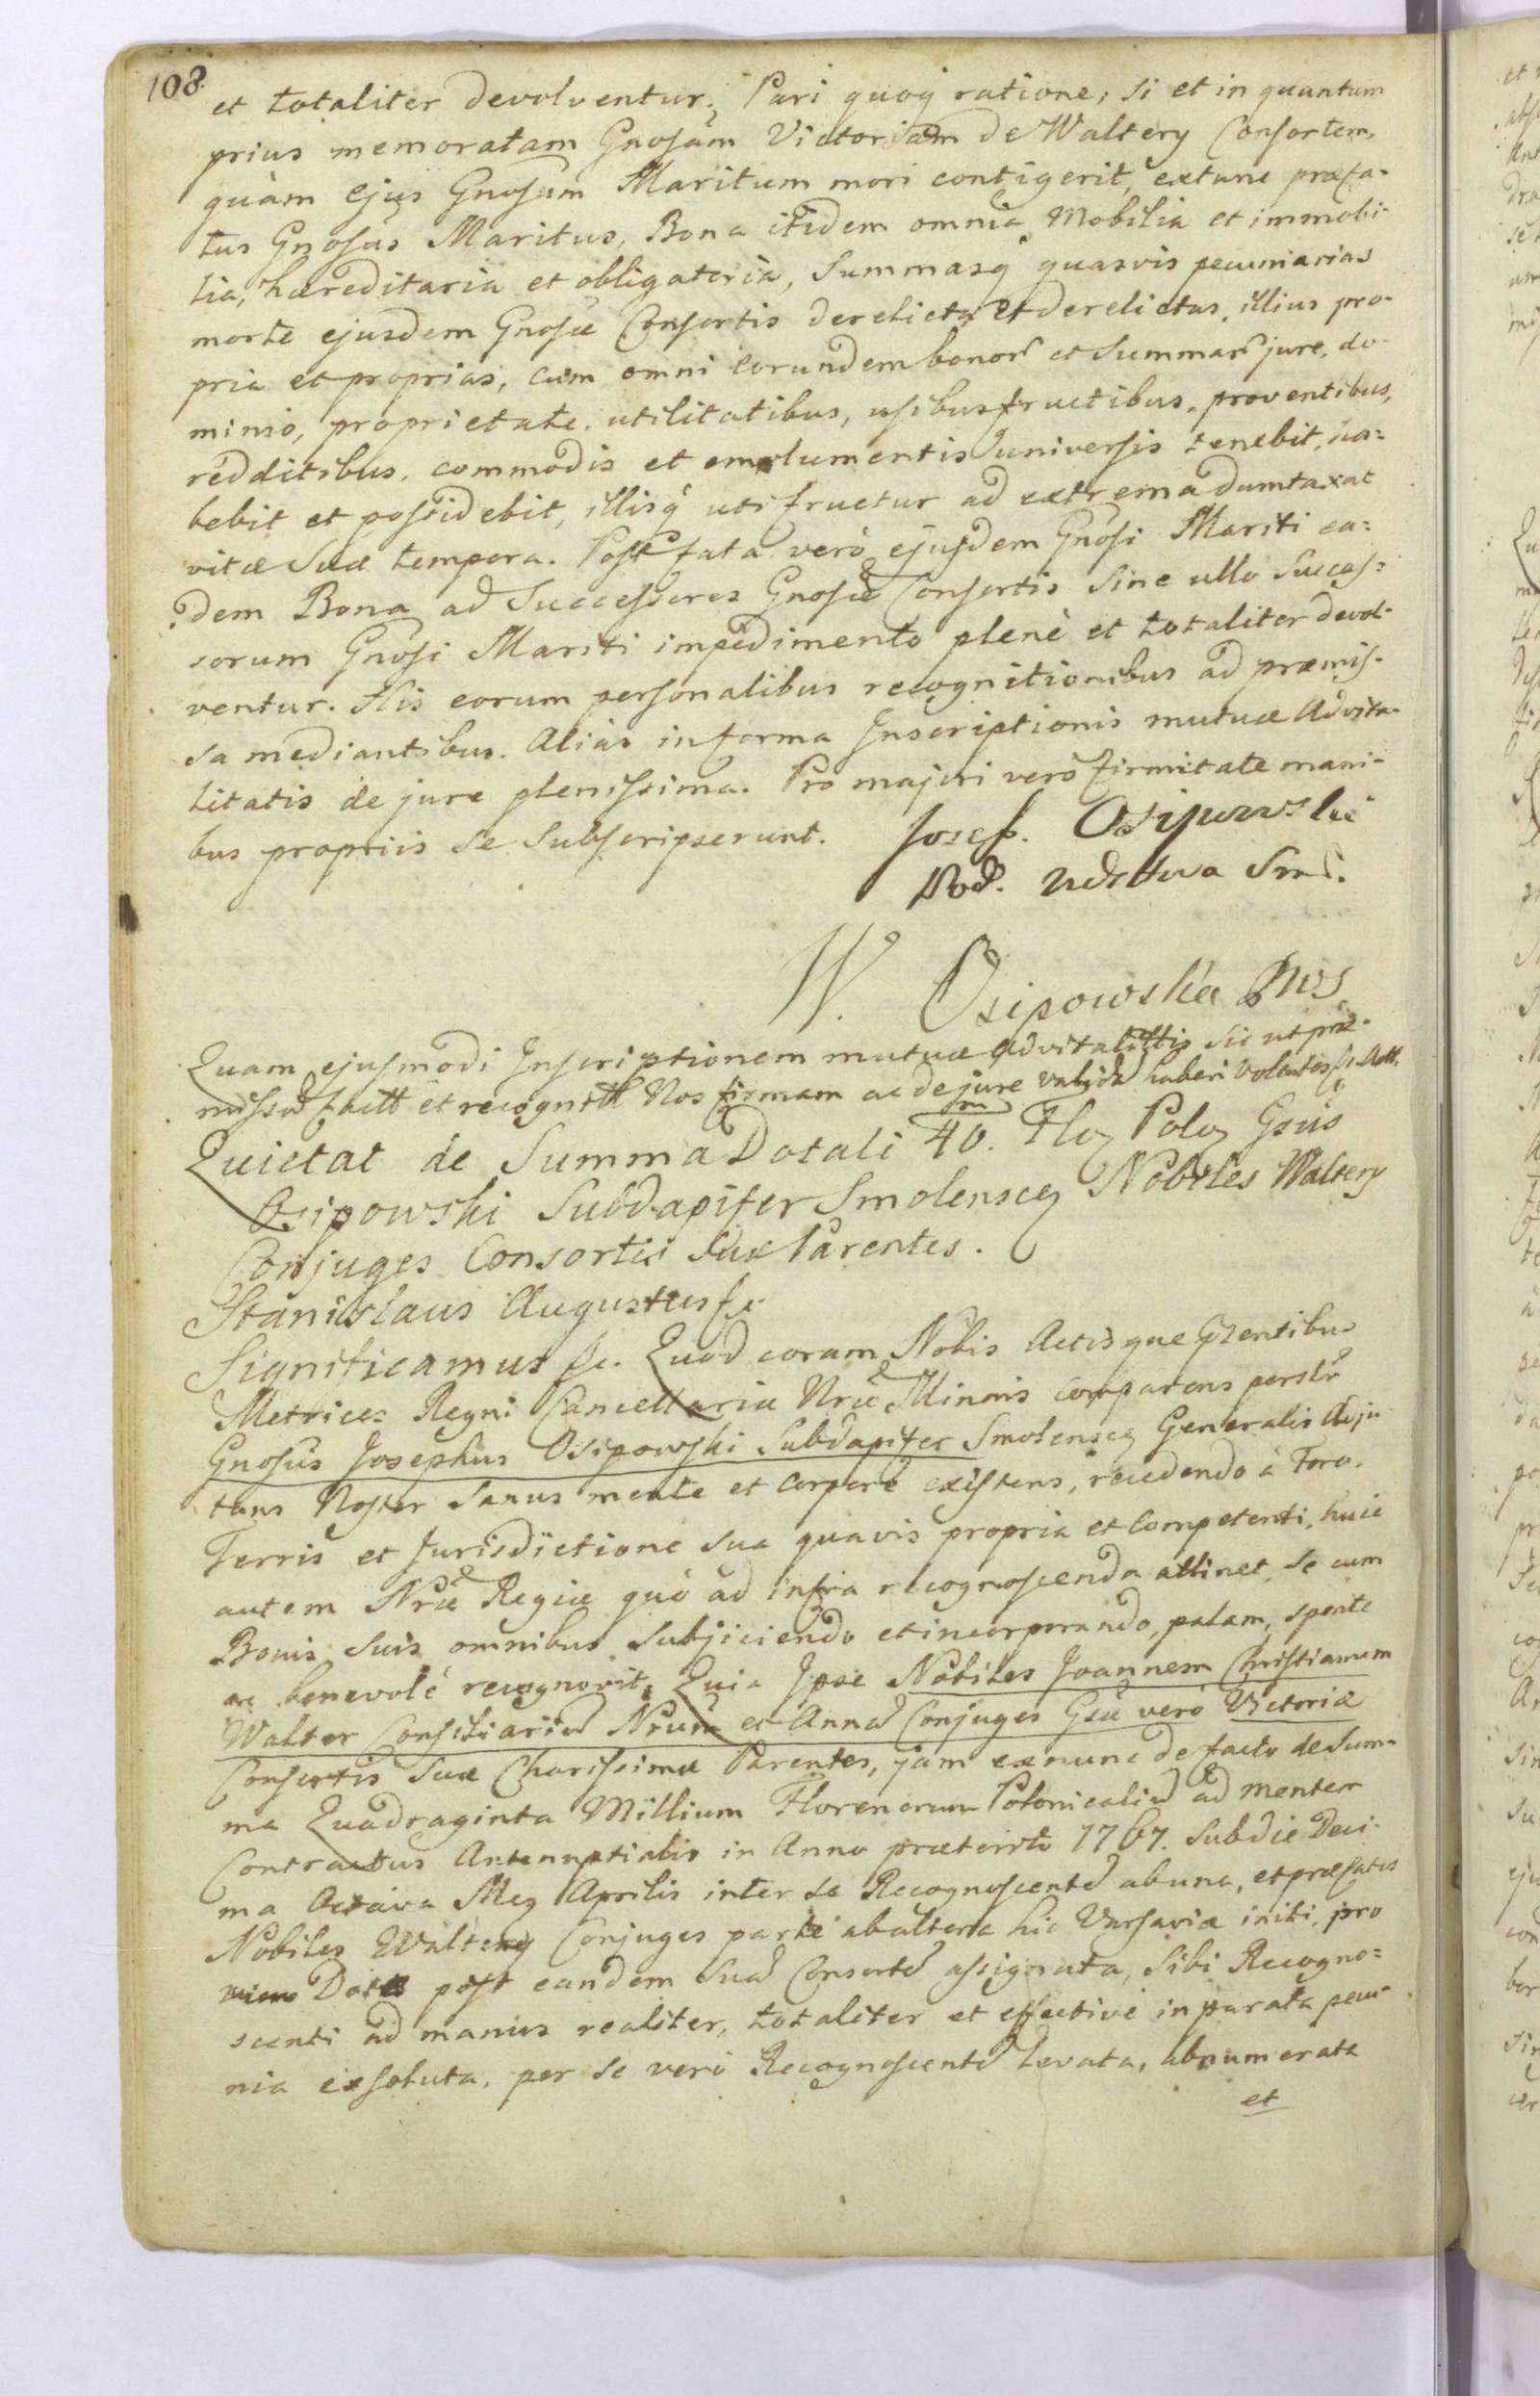 108.
et totaliter devolventur. Pari quoq ratione, si et in quantum
prius memoratam Gnosam Victoriam de Waltery Consortem,
quàm ejus Gnosum Maritum mori contigerit, extunc præfa-
tus Gnosus Maritus, Bona itidem omnia Mobilia et immobi-
lia, hæreditaria et obligatoria, Summasq quasvis pecuniarias
morte ejusdem Gnosæ Consortis derelicta et derelictas, illius pro-
pria et proprias, cum omni eorundem bonor et Summar jure, do-
minio, proprietate, utilitatibus, usibusfructibus, proventibus,
redditibus, commodis et emolumentis universis tenebit, ha=
bebit et possidebit, illisq uti fruetur ad extrema dumtaxat
vitæ Suæ tempora. Post fata verò ejusdem Gnosi Mariti ea=
dem Bona ad Successores Gnosæ Consortis Sine ullo Succes=
sorum Gnosi Mariti impedimento plenè et totaliter devol-
ventur. His eorum personalibus recognitionibus ad præmis-
sa mediantibus. Alias in forma Inscriptionis mutuæ Advita-
litatis de jure plenissima. Pro majori verò firmitate mani-
bus propriis se Subscripserunt. Josef. Osipowski
Pod.
W. Osipowska
Quam ejusmodi Inscriptionem mutuæ advitalitatis sic ut præ-
missū factt et recognitt Nos firmam ac de jure validā haberi volentes
Quietat de Summa Dotali 40. m Flo Polo Gsus
Osipowski Subdapifer Smolensce Nobiles Waltery
Conjuges Consortis Suæ Parentes.
Stanislaus Augustus &c.
Significamus &c. Quod coram Nobis Actisque Pzentibus
Metrices Regni Cancellariæ Nræ Minoris comparens perslr
Gnosus Josephus Osipowski Subdapifer Smolensce Generalis Adju
tans Noster Sanus mente et corpore existens, recedendo à Foro,
Terris et Jurisdictione sua quavis propria et competenti, huic
autem Nræ Regiæ quò ad infra recognoscenda attinet, se cum
Bonis Suis omnibus Subjiciendo et incorporando, palam, sponte
ac benevolè recognovit. Quia Ipse Nobiles Joannem Christianum
Walter Consiliariū Nrum et Annā Conjuges Gsæ verò Victoriæ
Consortis Suæ Charissimæ Parentes, jam exnunc de facto de Sum-
ma Quadraginta Millium Florenorum Polonicaliū ad mentem
Contractus Antenuptialis in Anno præterito 1767. Subdie Deci-
ma Octava Mez Aprilis inter se Recognoscentē abuna, et præfatos
Nobiles Waltery Conjuges parte abaltera hic Varsaviæ initi, pro
Dote post eandem Suā Consortē assignata, Sibi Recogno=
scenti ad manus realiter, totaliter et effectivè in parata pecu-
nia exsoluta, per se verò Recognoscentē levata, abnumerata
et